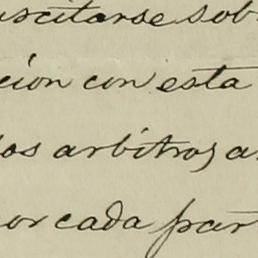 uscitarse sob
ción con esta
los arbitros a
or cada par